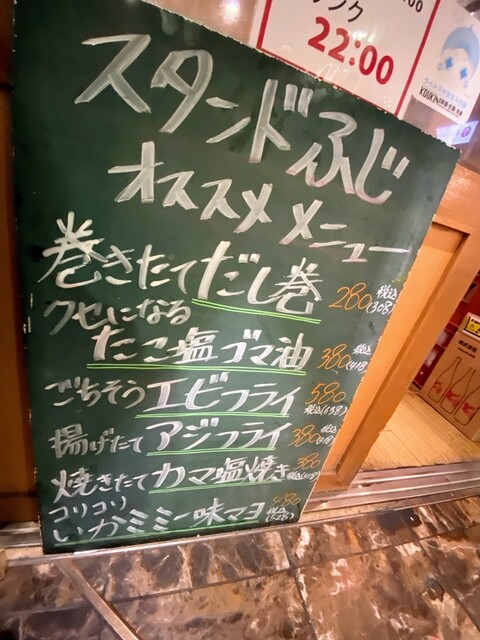 22:00
スタンドふじ
オススメメニュー
巻きたてだし巻 280 税込(308)
クセになる
たこ塩ゴマ油 380 税込(418)
ごちそうエビフライ 580 税込(638)
揚げたてアジフライ 380 税込(418)
焼きたてカマ塩焼き 380 税込(418)
コリコリ
いかミミ一味マヨ 480 税込(528)